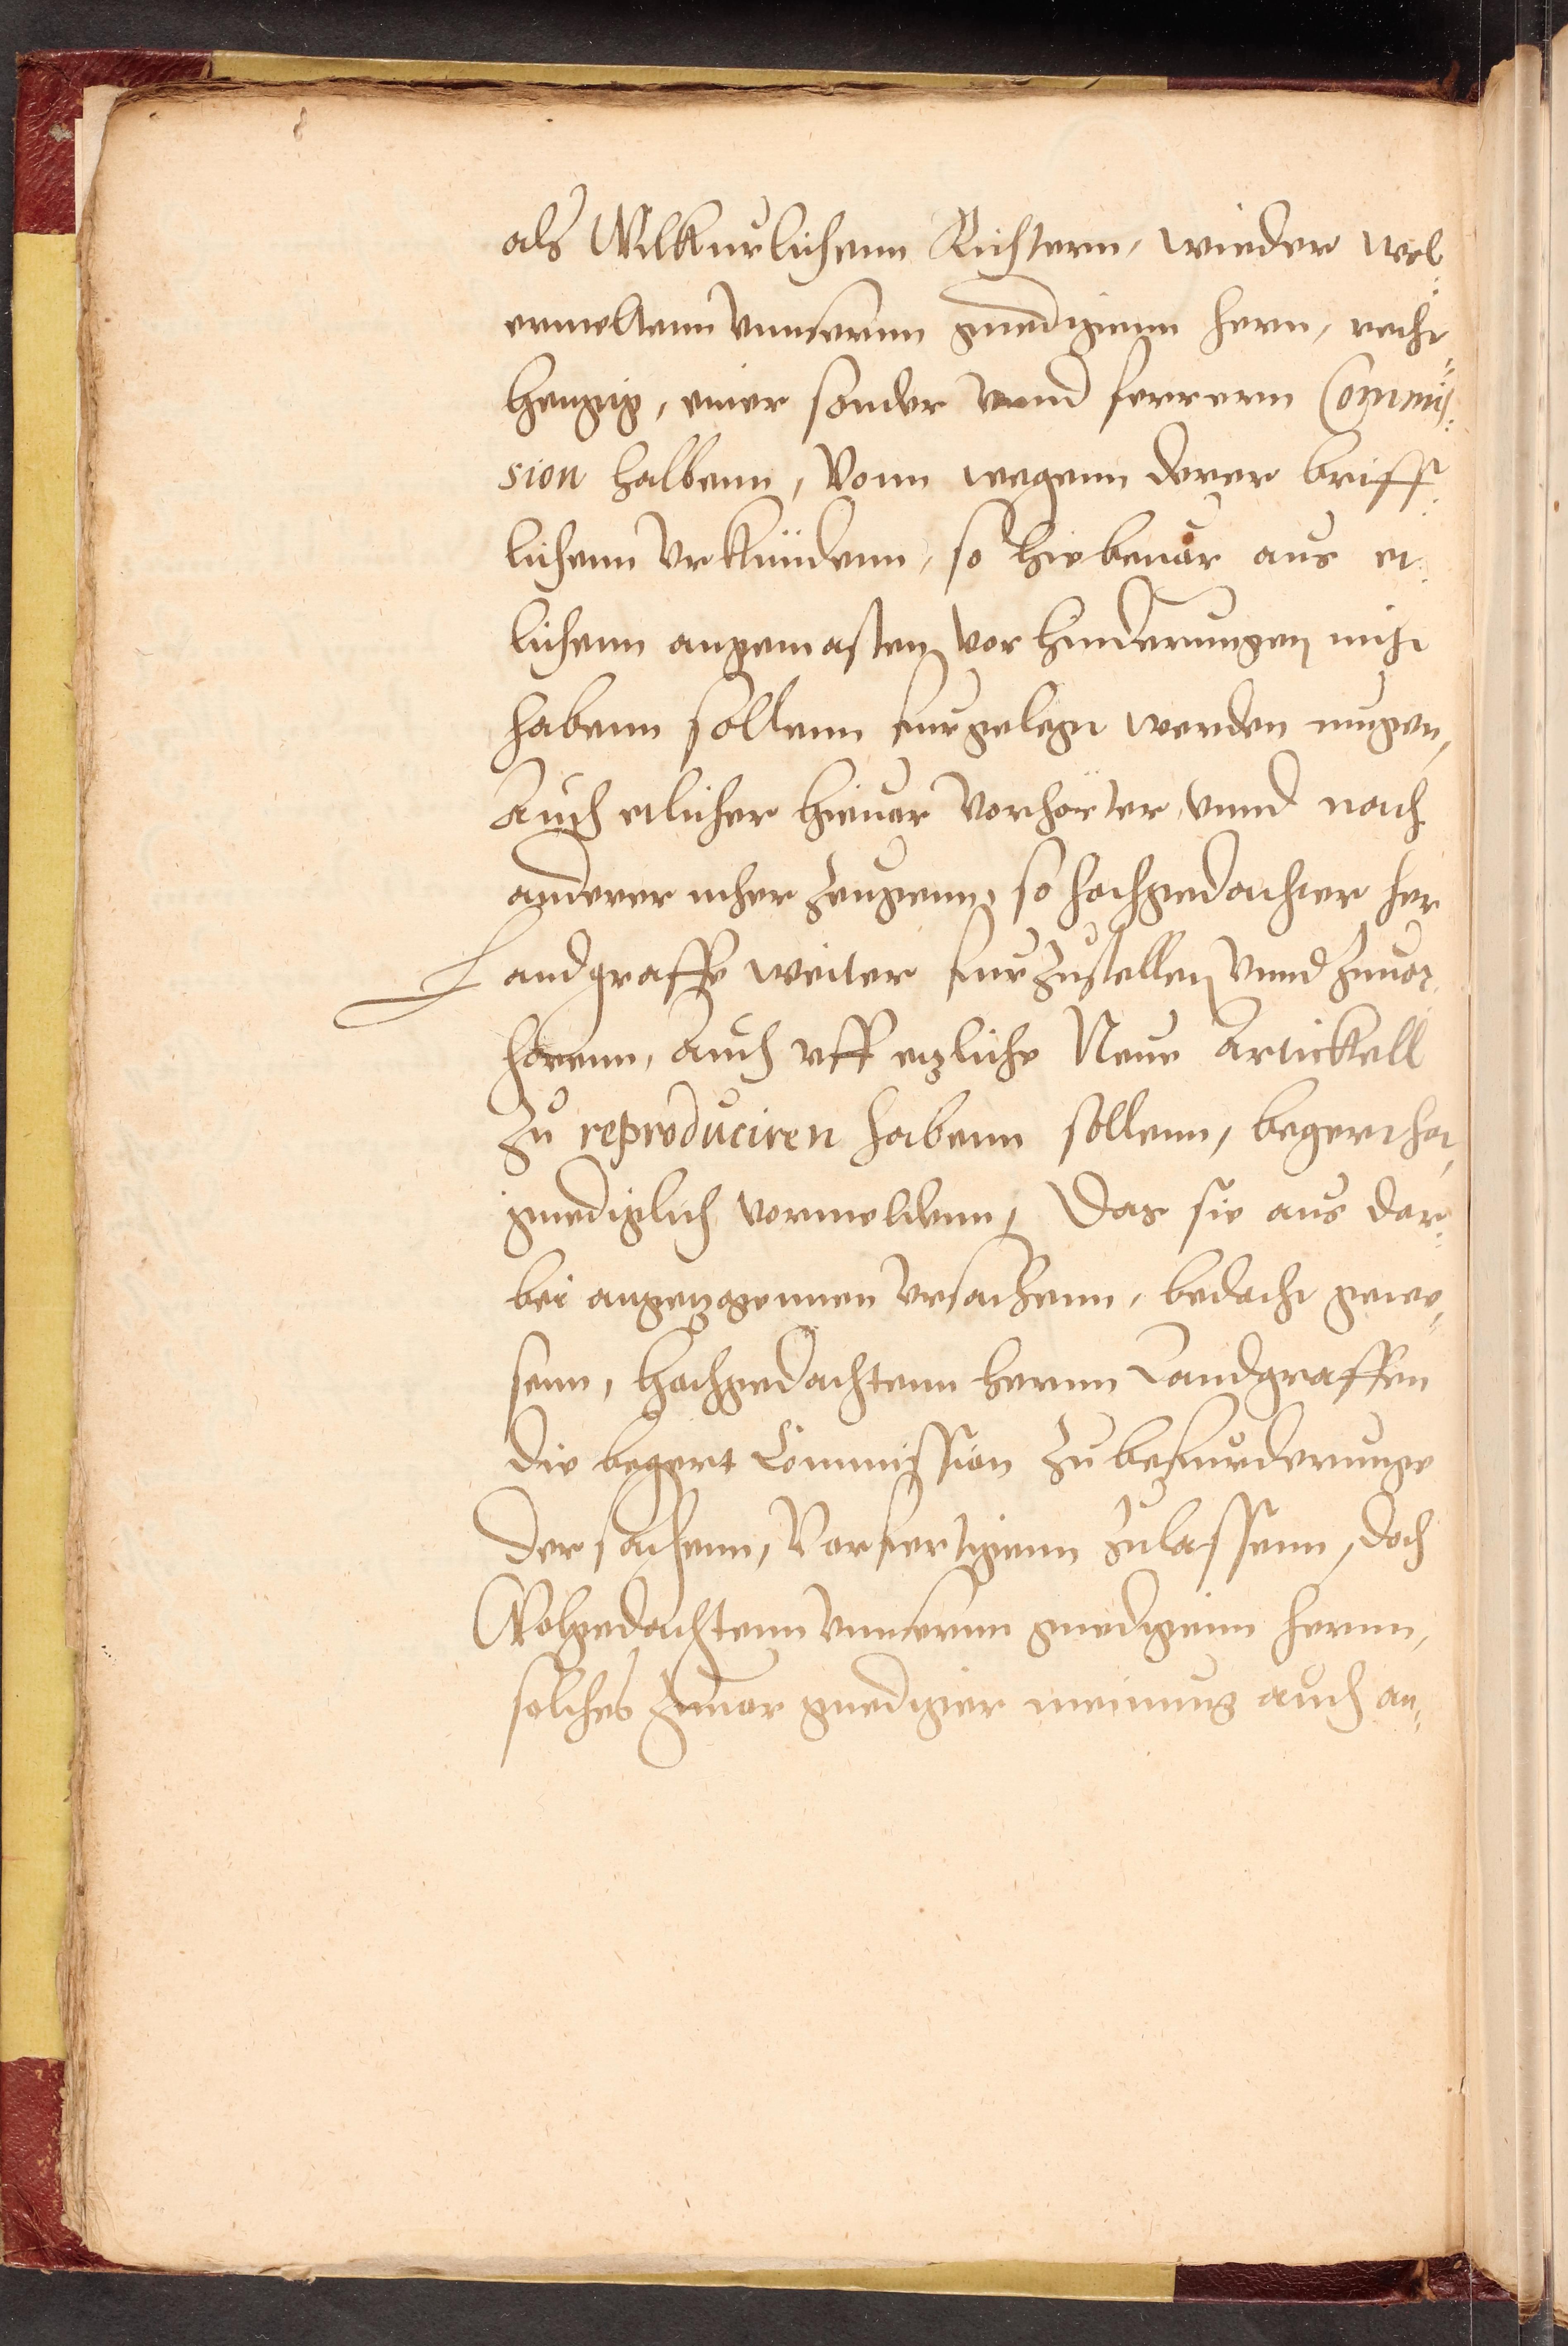 als Wilkurlichenn Richtern, wieder wol-
ermeltenn vnnserenn gnedigenn hern, recht-
hengig, einer sonder vnnd ferrern Commis-
sion halbenn, vonn wegenn derer briff-
lichenn vrkundenn, so hiebeuar aus et-
lichenn angemasten vorhinderungen nicht
habenn sollenn furgelegt werden mugen,
Auch etlicher hieuor vorhorter vnnd noch
anderer meher zeugenn, so hochgedachter her
Landgraffe weiter furzustellen vnnd zuuor-
horenn, auch vff etzliche Neue Artickell
zu reproduciren habenn sollenn, begert hat
gnediglich vormeldenn, Das sie aus dar-
bei angezogennen vrsachenn, bedacht gewe-
senn, hochgedachtenn herrnn Landgraffen
die begert Commission zu befurderunge
der sachenn, Vorfertigenn zulassenn, doch
Wolgedachtenn vnnserenn gnedigenn herrnn,
solches zuuor gnediger meinung auch an-